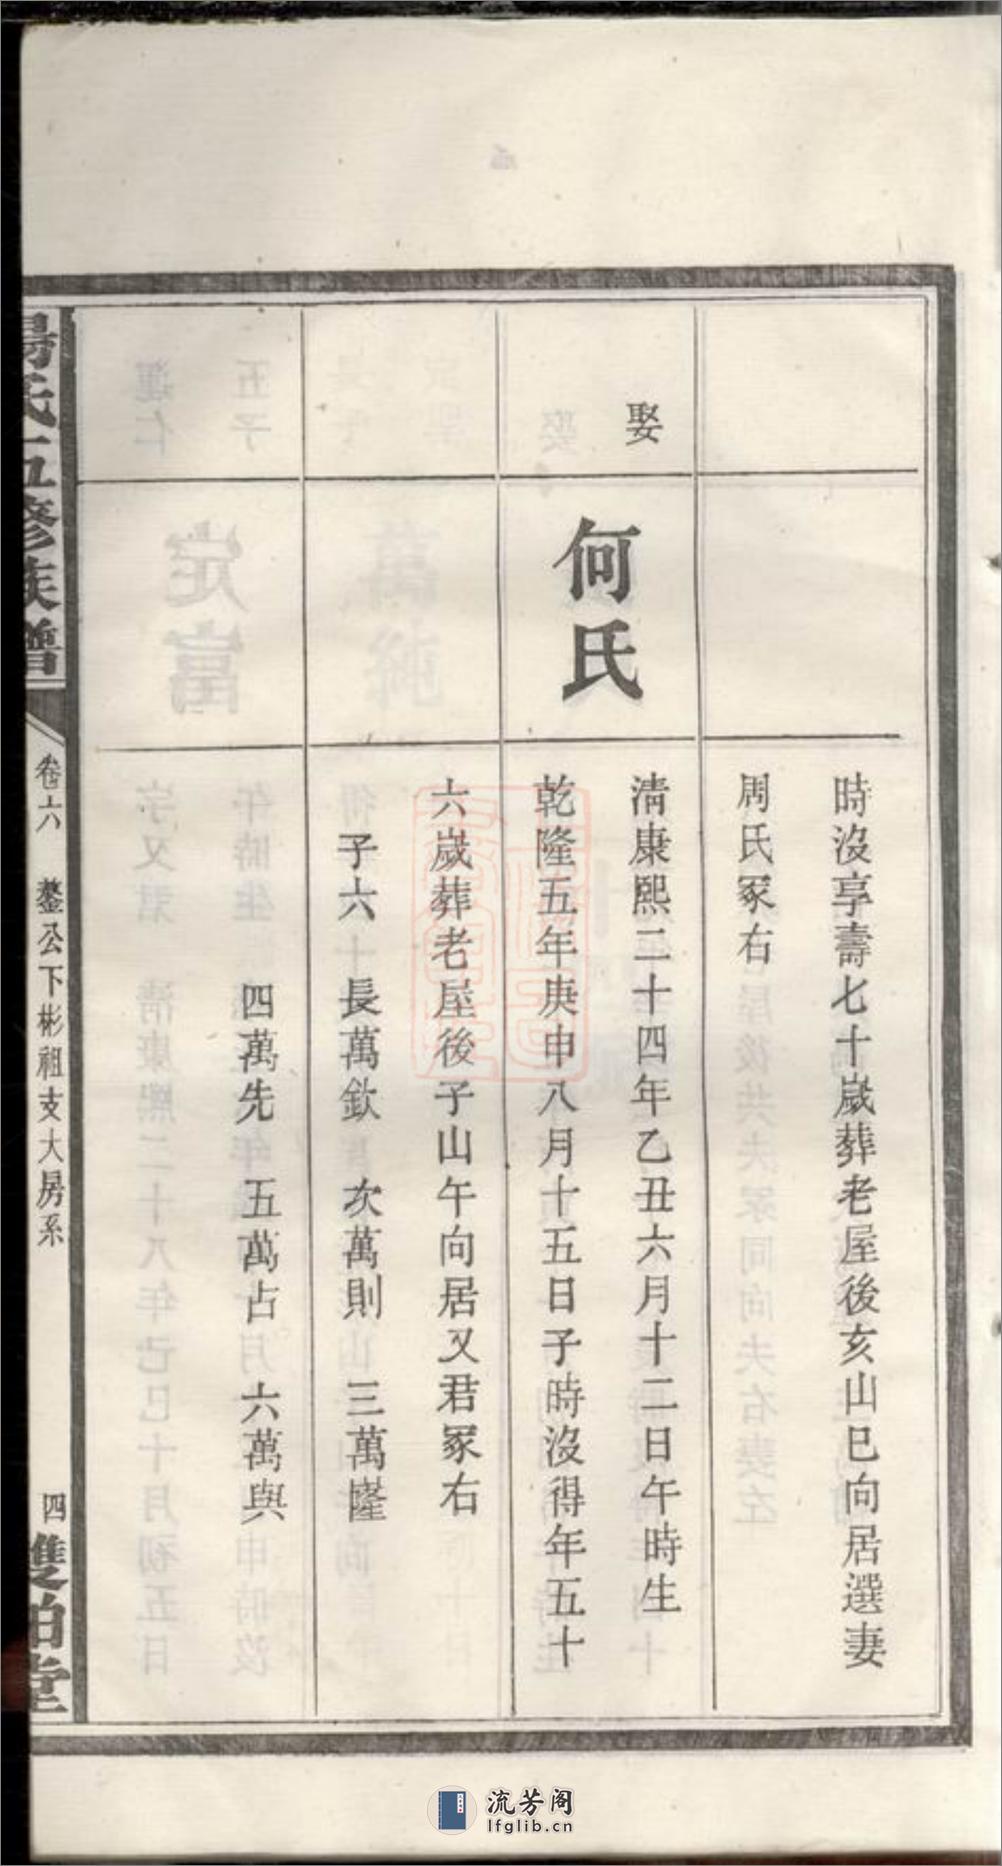 時沒享壽七十歲葬老屋後亥山巳向居選妻
周氏冢右
娶
何氏
清康熙二十四年乙丑六月十二日午時生
乾隆五年庚申八月十五日子時沒得年五十
六歲葬老屋後子山午向居又君冢右
子六 長萬欽 次萬則 三萬隆
四萬先 五萬占 六萬與
楊氏五修族譜
卷六 鏊公下彬祖支大房系
四
雙柏堂
流芳阁
lfglib.cn